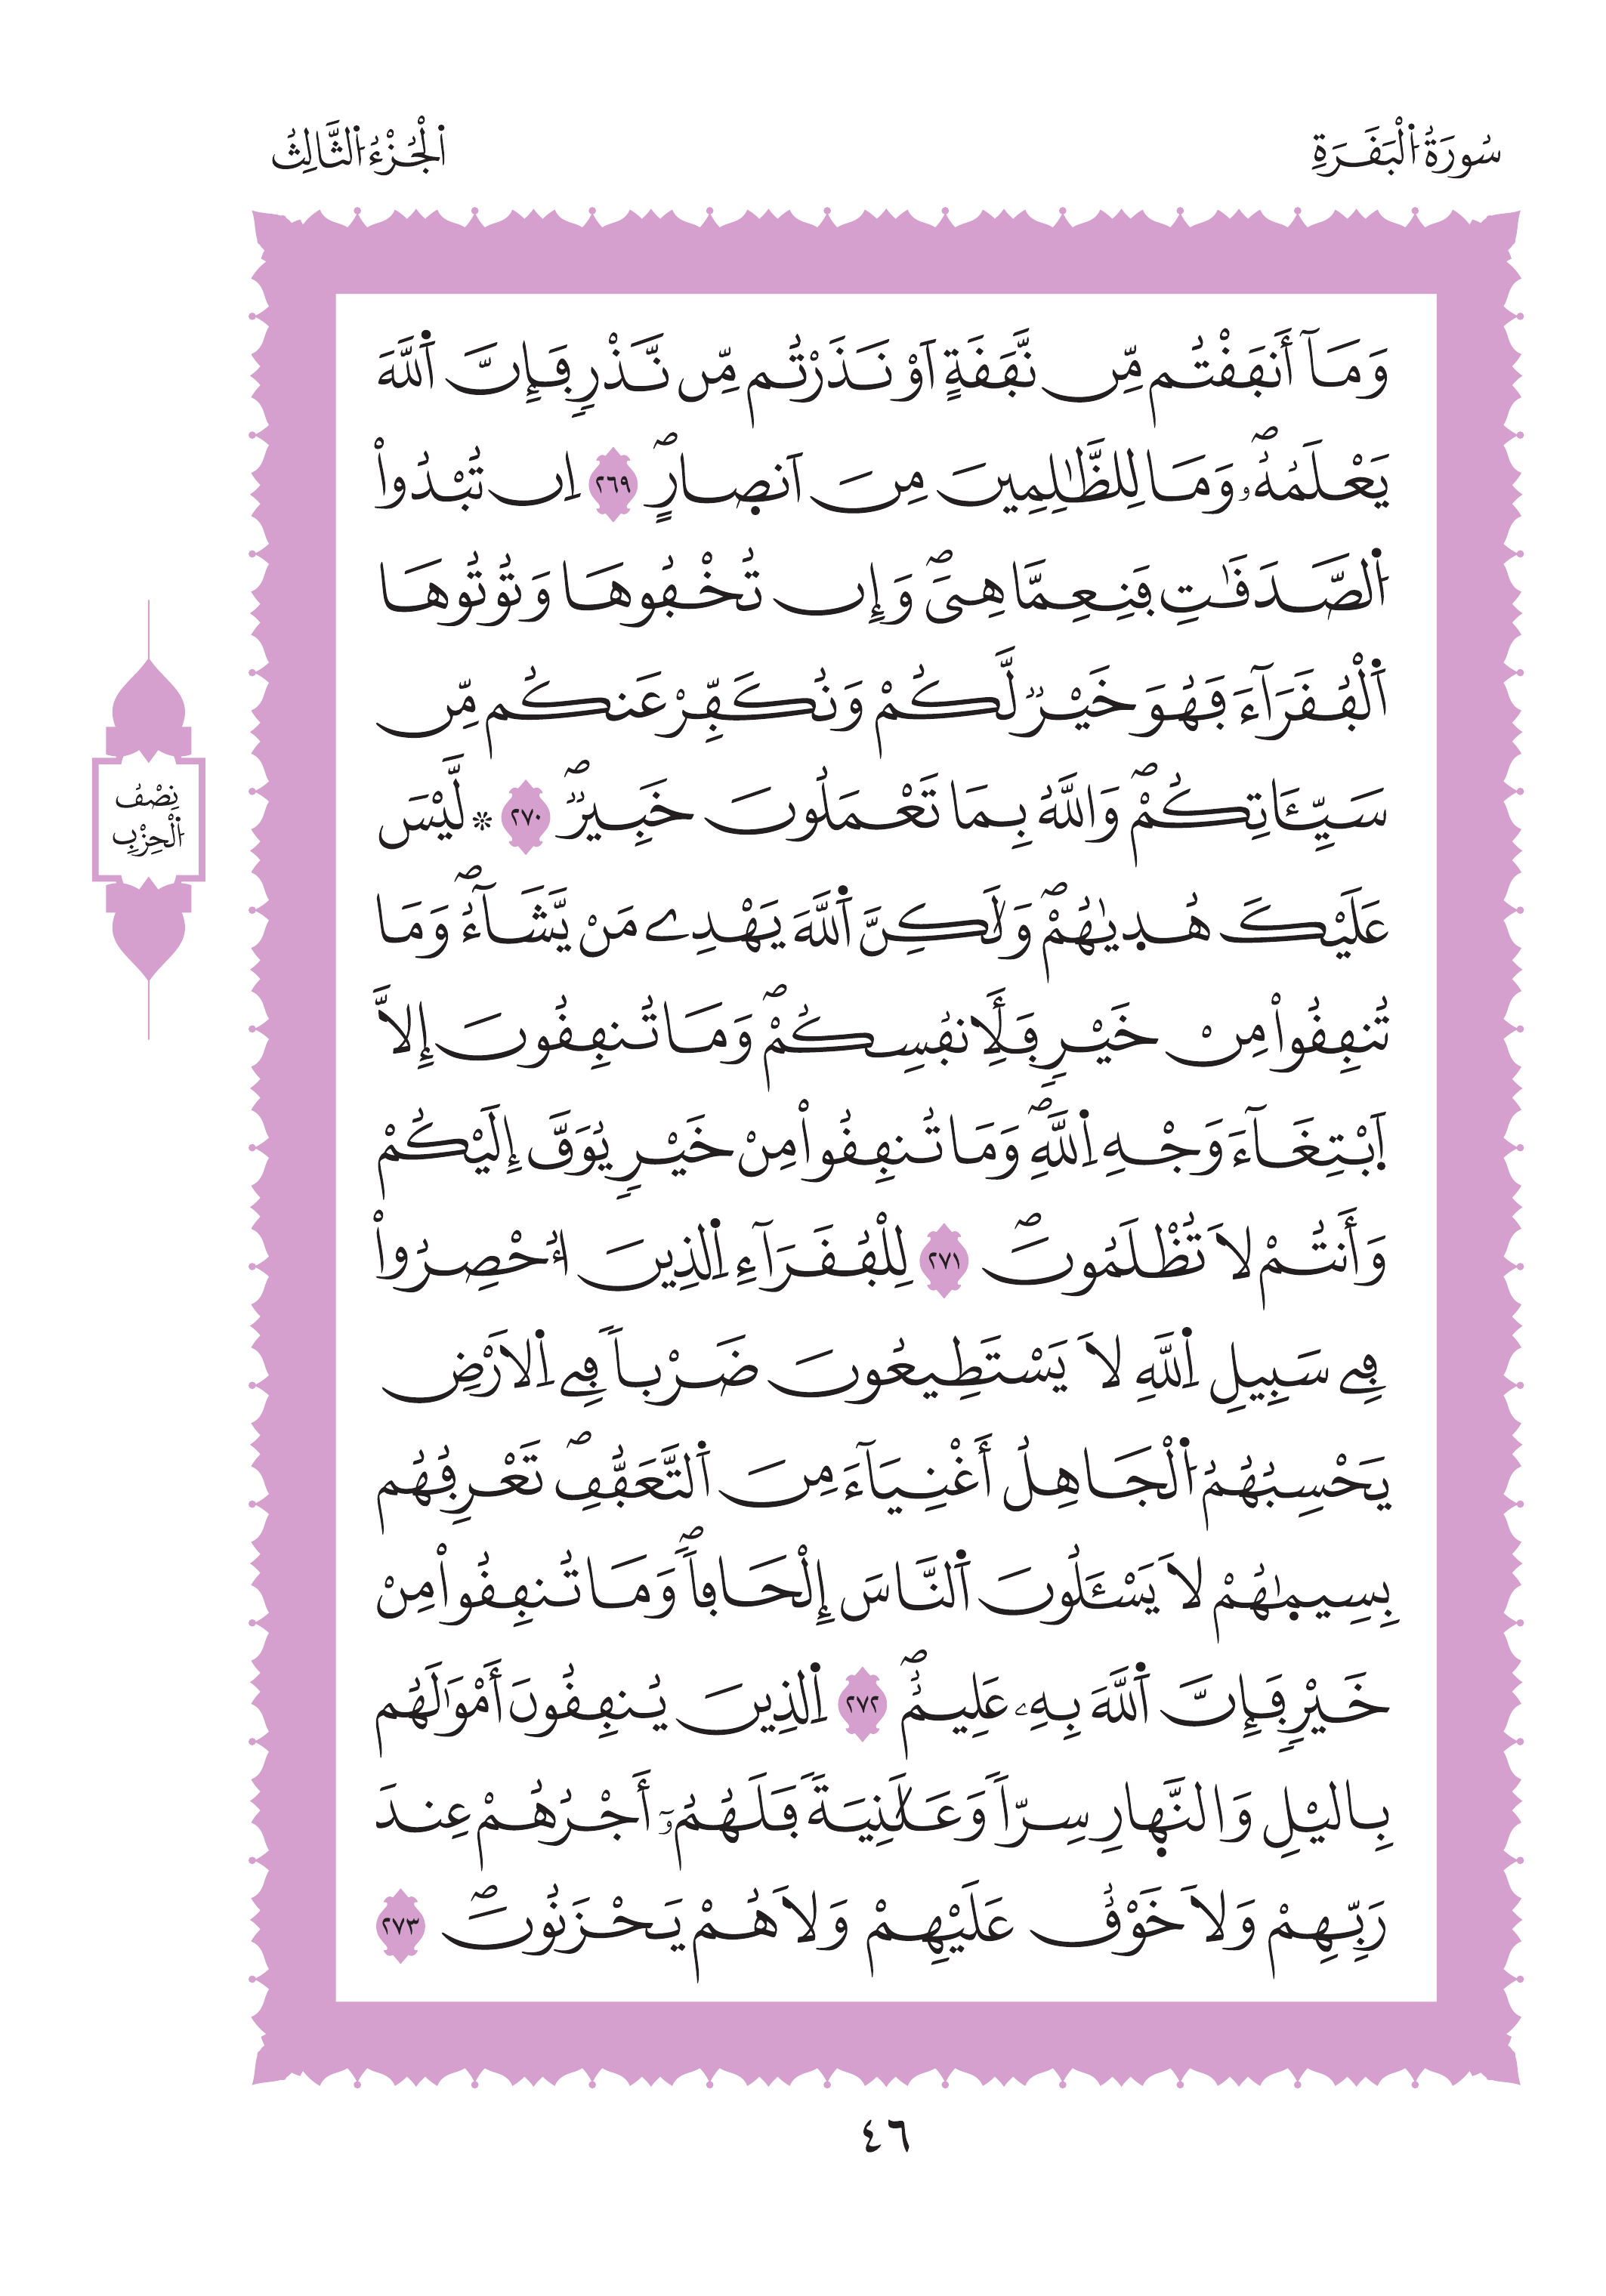 سُورَةُ اُ۬لْبَقَرَةِ
اَ۬لْجُزْءُ اُ۬لثَّالِثُ
وَمَآ أَنفَقْتُم مِّن نَّفَقَةٍ اَوْ نَذَرْتُم مِّن نَّذْرٖ فَإِنَّ اَ۬للَّهَ
يَعْلَمُهُۥۖ وَمَا لِلظَّٰلِمِينَ مِنَ اَنص۪ارٍۖ ٢٦٩ اِن تُبْدُواْ
اُ۬لصَّدَقَٰتِ فَنِعِمَّا هِىَۖ وَإِن تُخْفُوهَا وَتُوتُوهَا
اَ۬لْفُقَرَآءَ فَهُوَ خَيْرٞ لَّكُمْ وَنُكَفِّرْ عَنكُم مِّن
سَيِّـَٔاتِكُمْۖ وَاللَّهُ بِمَا تَعْمَلُونَ خَبِيرٞۖ ٢٧٠ ۞ لَّيْسَ
عَلَيْكَ هُد۪يٰهُمْۖ وَلَٰكِنَّ اَ۬للَّهَ يَهْدِے مَنْ يَّشَآءُۖ وَمَا
تُنفِقُواْ مِنْ خَيْرٖ فَلِأَنفُسِكُمْۖ وَمَا تُنفِقُونَ إِلاَّ
اَ۪بْتِغَآءَ وَجْهِ اِ۬للَّهِۖ وَمَا تُنفِقُواْ مِنْ خَيْرٖ يُوَفَّ إِلَيْكُمْ
وَأَنتُمْ لاَ تُظْلَمُونَۖ ٢٧١ لِلْفُقَرَآءِ اِ۬لذِينَ أُحْصِرُواْ
فِے سَبِيلِ اِ۬للَّهِ لاَ يَسْتَطِيعُونَ ضَرْباٗ فِے اِ۬لاَرْضِ
يَحْسِبُهُمُ اُ۬لْجَاهِلُ أَغْنِيَآءَ مِنَ اَ۬لتَّعَفُّفِۖ تَعْرِفُهُم
بِسِيمٰ۪هُمْ لاَ يَسْـَٔلُونَ اَ۬لنَّاسَ إِلْحَافاٗۖ وَمَا تُنفِقُواْ مِنْ
خَيْرٖ فَإِنَّ اَ۬للَّهَ بِهِۦ عَلِيمٌۖ ٢٧٢ اِ۬لذِينَ يُنفِقُونَ أَمْوَٰلَهُم
بِاليْلِ وَالنَّه۪ارِ سِرّاٗ وَعَلَٰنِيَةٗ فَلَهُمُۥٓ أَجْرُهُمْ عِندَ
رَبِّهِمْ وَلاَ خَوْفٌ عَلَيْهِمْ وَلاَ هُمْ يَحْزَنُونَۖ ٢٧٣
نِصْفُ
اُ۬لْحِزْبِ
٤٦